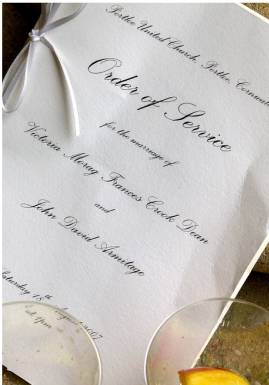 Porthoe United Church, Porthoe, Cornwall
Order of Service
for the marriage of
Victoria Morag Frances Crook Dean
and
John David Armitage
Saturday 18th August 2007
at 1pm